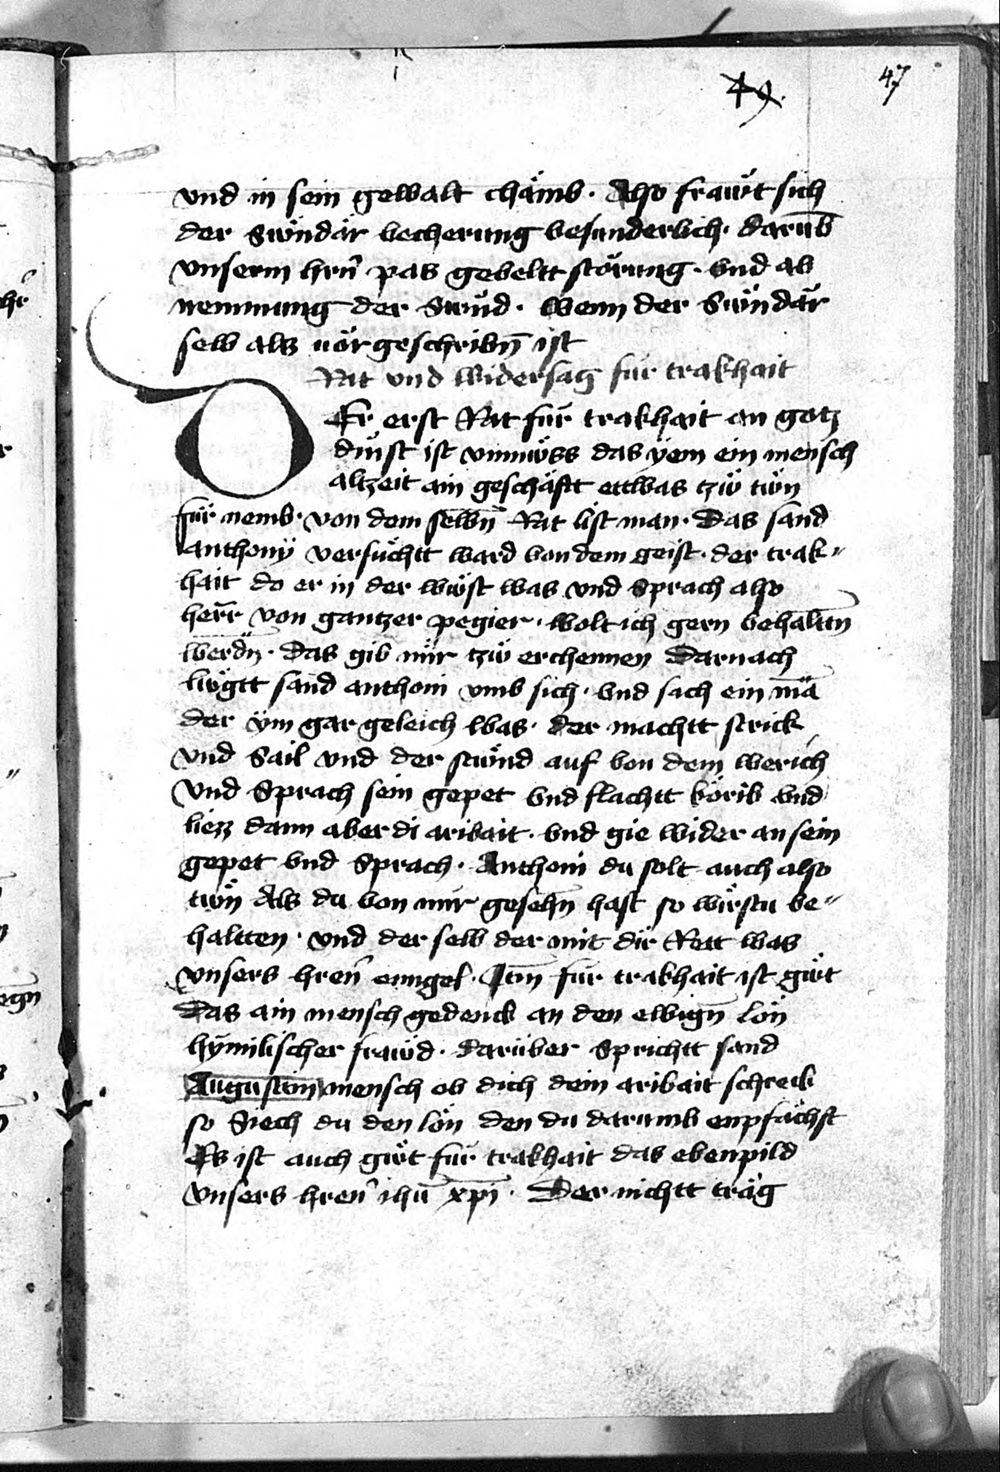 49.
47
vnd in sein gewalt chämb. Also frawt sich
der Sündär becherung besunderlich. darub̄
vnserm hrn̄ pas gebeltt störung. vnd ab
nemmung der Sünd. Wenn der Sündär
selb als uörgeschribn̄ ist
Rat vnd widersag für trakhait
Er erst Rat für trakhait an gotz
dinst ist vmmüss das yem ein mensch
altzeit ain geschäftt ettwas tzw twn
für nemb. von dem selbn̄ Rat list man. Das sand
anthony versüchtt ward von dem geist. der trak〃
hait do er in der wüst was vnd Sprach also
herr von gantzer pegier. wolt ich gern behaltn̄
werdn̄. Das gib mir tzw erchennen Darnach
lügtt sand anthoni vmb sich. vnd sach ein mā
der ym gar geleich was. der machtt strick
vnd Sail vnd der stünd auf von dem werich
vnd Sprach sein gepet vnd flachtt körib vnd
liezz dann aber di aribait. vnd gie wider an sein
gepet vnd Sprach. Anthoni du solt auch also
twn Als du von mir gesehn̄ hast so wirstu be〃
haltten. vnd der selb der mit dir Rett was
vnsers hren̄ enngel. Itm̄ für trakhait ist güt
Das ain mensch gedenck an den ewign̄ lön
hymilischer frawd. darüber Sprichtt sand
Augustin mensch ob dich dein aribait schreck
so Siech du den lön den du darumb enpfächst
Es ist auch güt für trakhait das ebenpild
vnsers hren̄ ihū xp̄i. Der nichtt träg